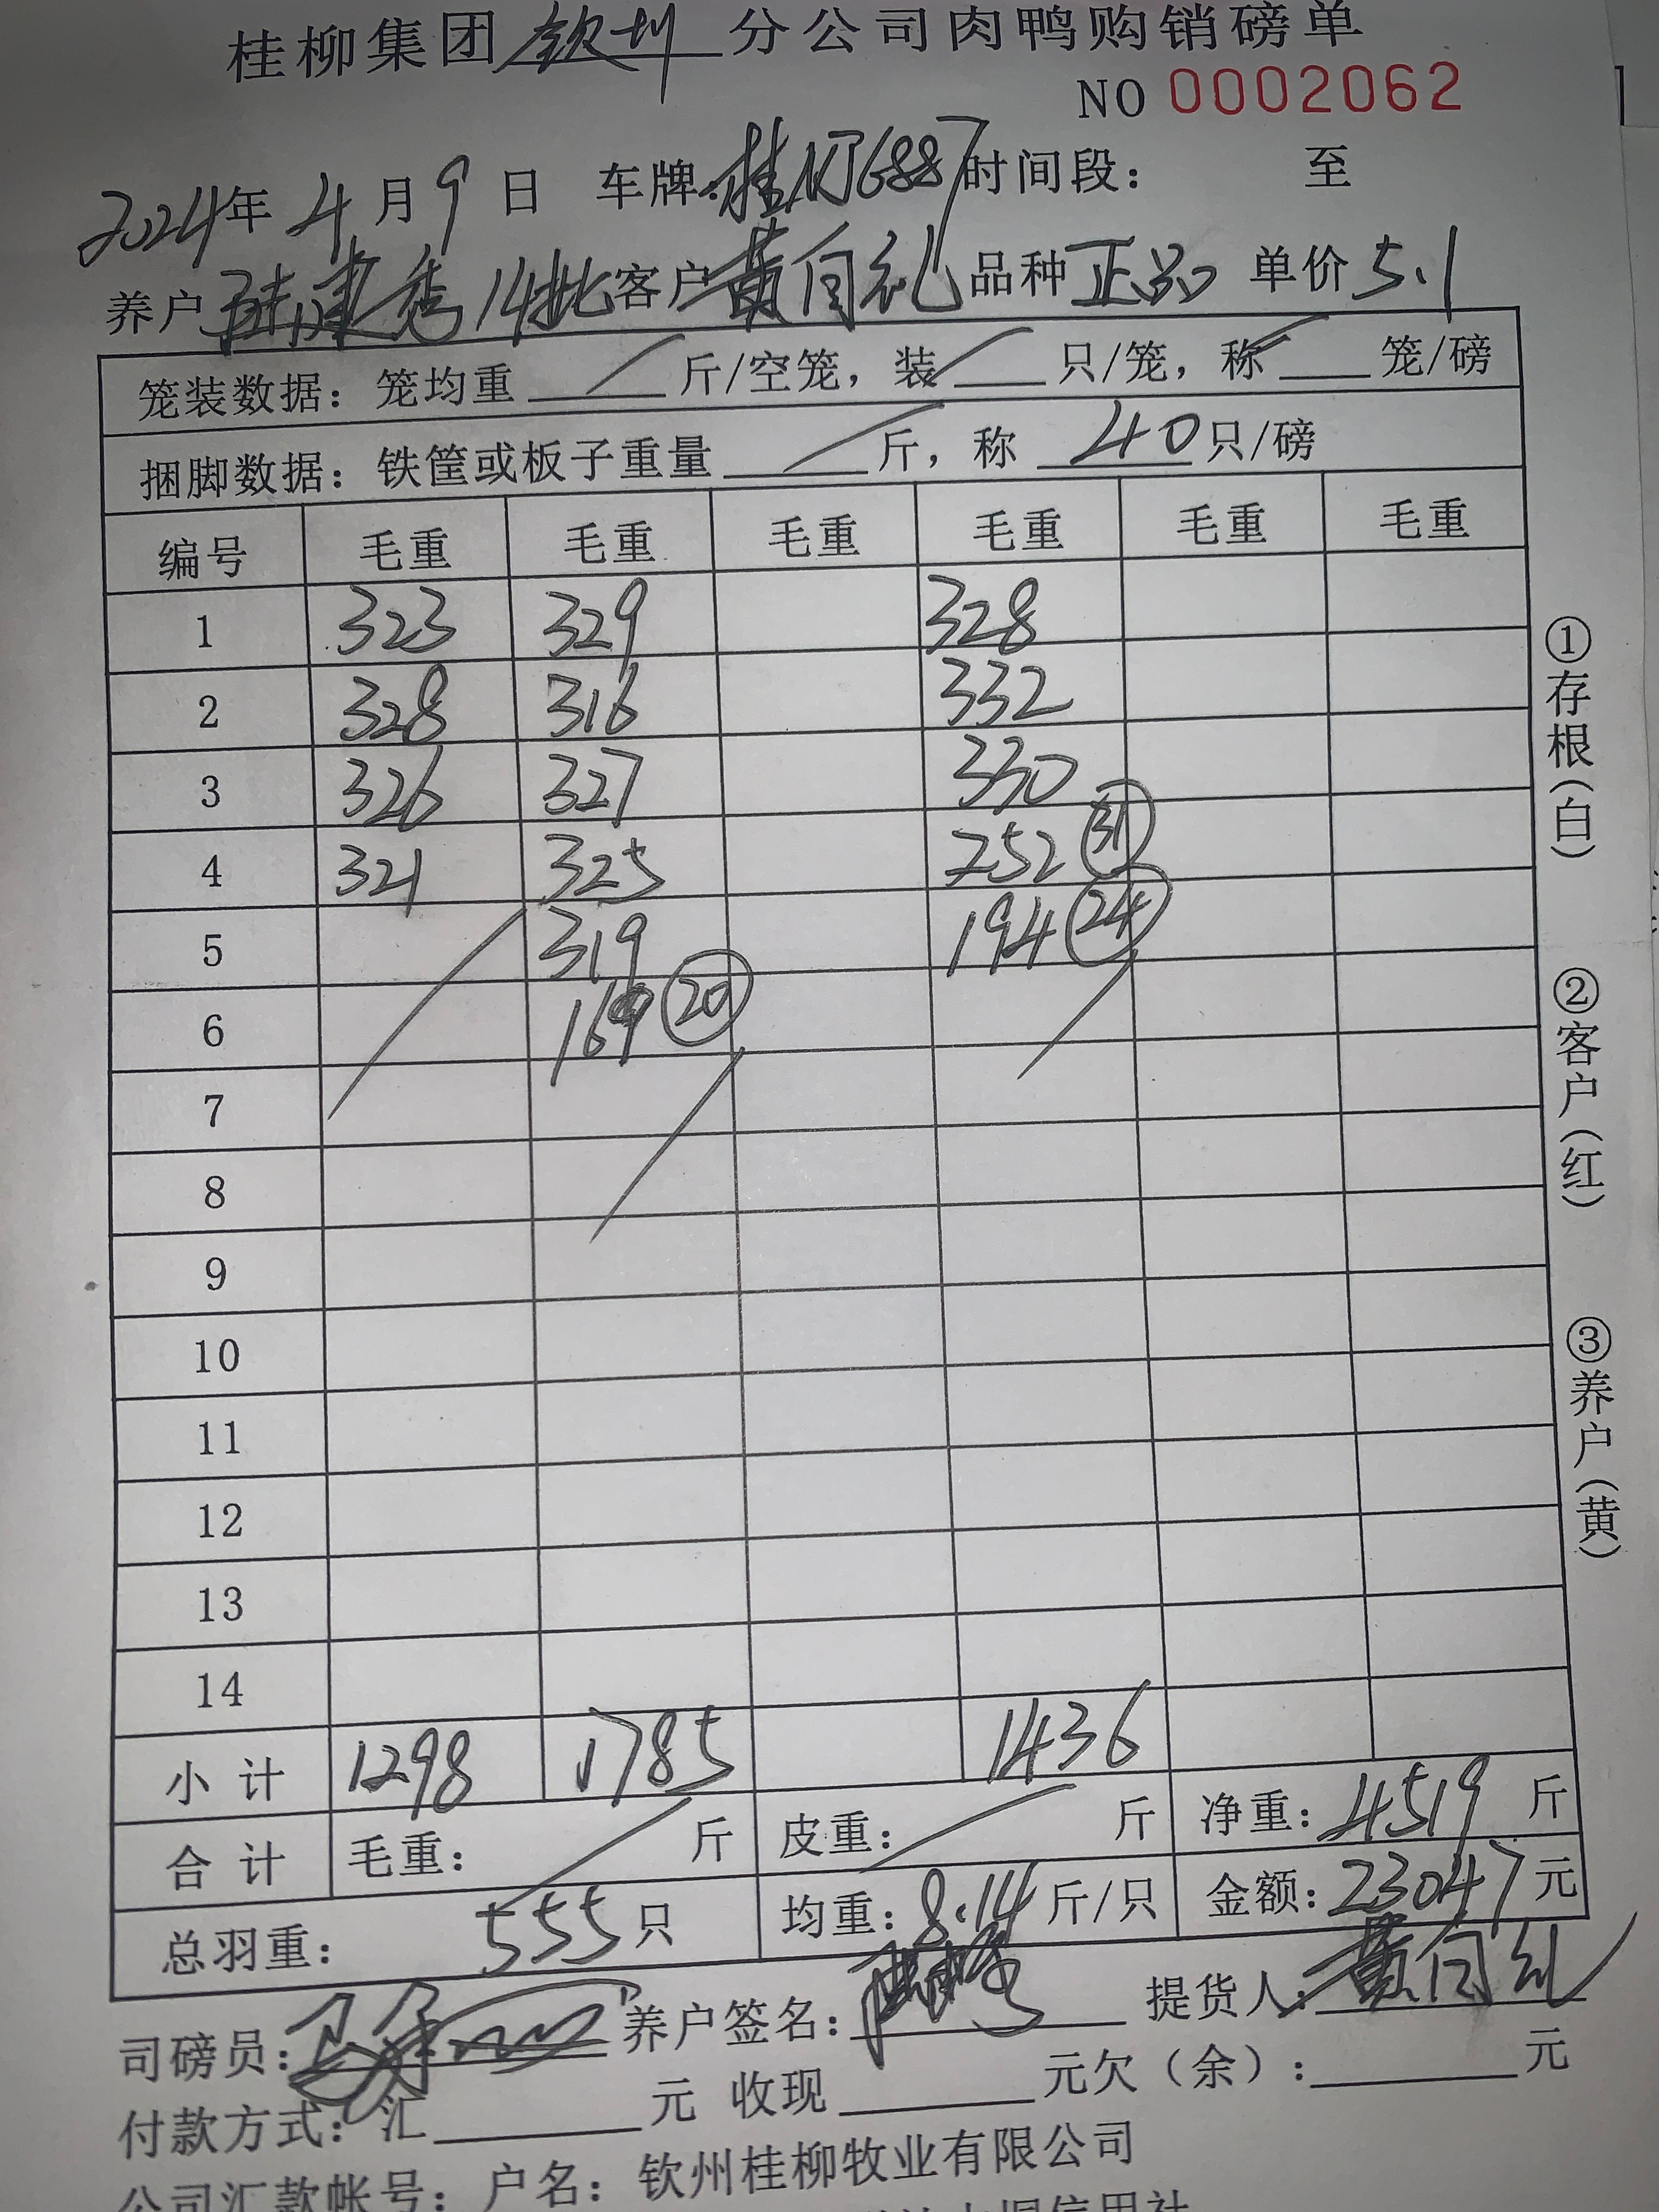 桂柳集团 钦州 分公司肉鸭购销磅单
NO 0002062
2024年 4月 9日 车牌: 桂N J6887 时间段: 至
养户 陆建秀 14批 客户 黄自礼 品种 正品 单价 5.1
笼装数据: 笼均重 / 斤/空笼, 装 / 只/笼, 称 / 笼/磅
捆脚数据: 铁筐或板子重量 / 斤, 称 40 只/磅
编号 毛重 毛重 毛重 毛重 毛重 毛重
1 323 329 328
2 328 316 332
3 326 327 330
4 321 325 252 31
5 319 194 24
6 169 20
7
8
9
10
11
12
13
14
小计 1298 1785 1436
合计 毛重: / 斤 皮重: / 斤 净重: 4519 斤
总羽重: 555 只 均重: 8.14 斤/只 金额: 23047 元
司磅员: 养户签名: 提货人: 黄自礼
付款方式: 汇 元 收现 元欠(余): 元
公司汇款帐号: 户名: 钦州桂柳牧业有限公司
信用社
①存根(白)
②客户(红)
③养户(黄)